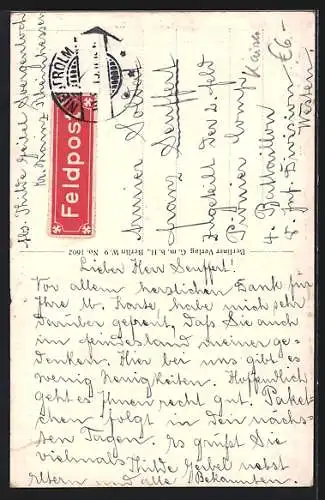 Abs. Hilde Geibel
Feldpost
NIEDEROLM
Armier Soldat
Franz Seuffert
Zugeteilt der 2. Feld
Pionier Comp.
4. Bataillon
8. Inf. Division
Westen
Berliner Verlag G. m. b. H., Berlin W. 9. No. 1602
Lieber Herr Seuffert!
Vor allem herzlichen Dank für
Ihre w. Karte, habe mich sehr
darüber gefreut, daß Sie auch
im Feindesland meiner ge-
denken. Hier bei uns gibt es
wenig Neuigkeiten. Hoffendlich
geht es Ihnen recht gut. Paket-
chen folgt in den nächs-
ten Tagen. Es grüßt Sie
vielmals Hilde Geibel nebst
Eltern und alle Bekannten.